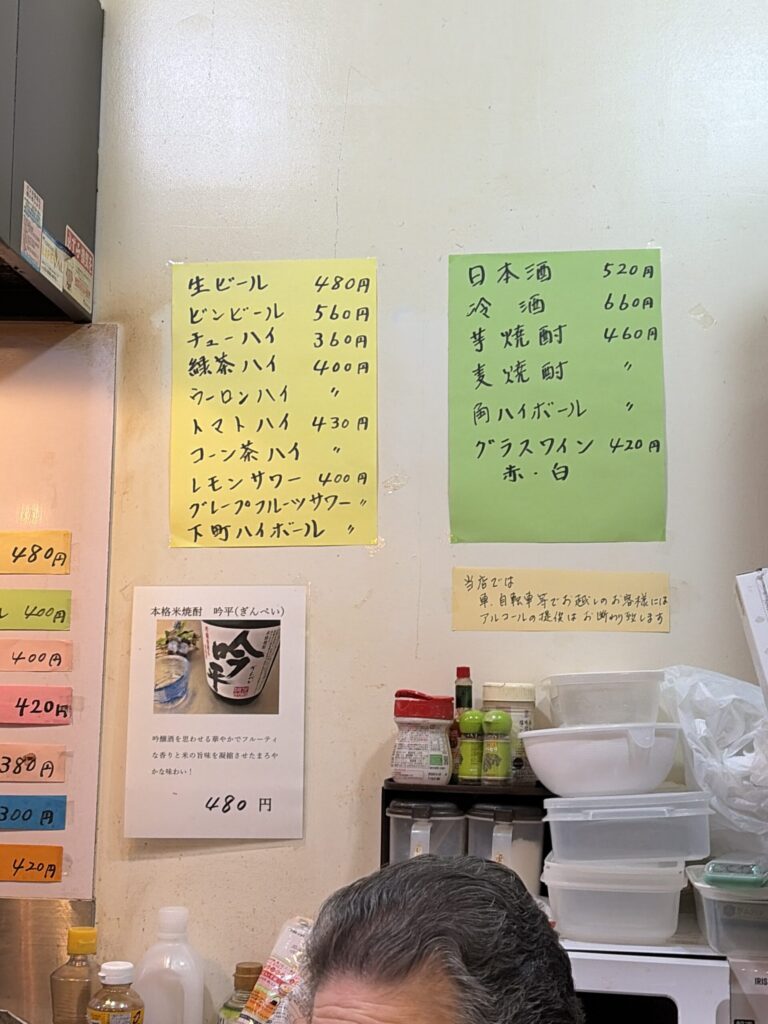 生ビール 480円
ビンビール 560円
チューハイ 360円
緑茶ハイ 400円
ウーロンハイ 〃
トマトハイ 430円
コーン茶ハイ 〃
レモンサワー 400円
グレープフルーツサワー 〃
下町ハイボール 〃
日本酒 520円
冷酒 660円
芋焼酎 460円
麦焼酎 〃
角ハイボール 〃
グラスワイン 420円
赤・白
当店では
車、自転車等でお越しのお客様には
アルコールの提供はお断り致します
480円
ル 400円
400円
420円
380円
300円
420円
本格米焼酎 吟平(ぎんぺい)
吟平
ぎんぺい
吟醸酒を思わせる華やかでフルーティ
な香りと米の旨味を凝縮させたまろや
かな味わい！
480円
IRIS